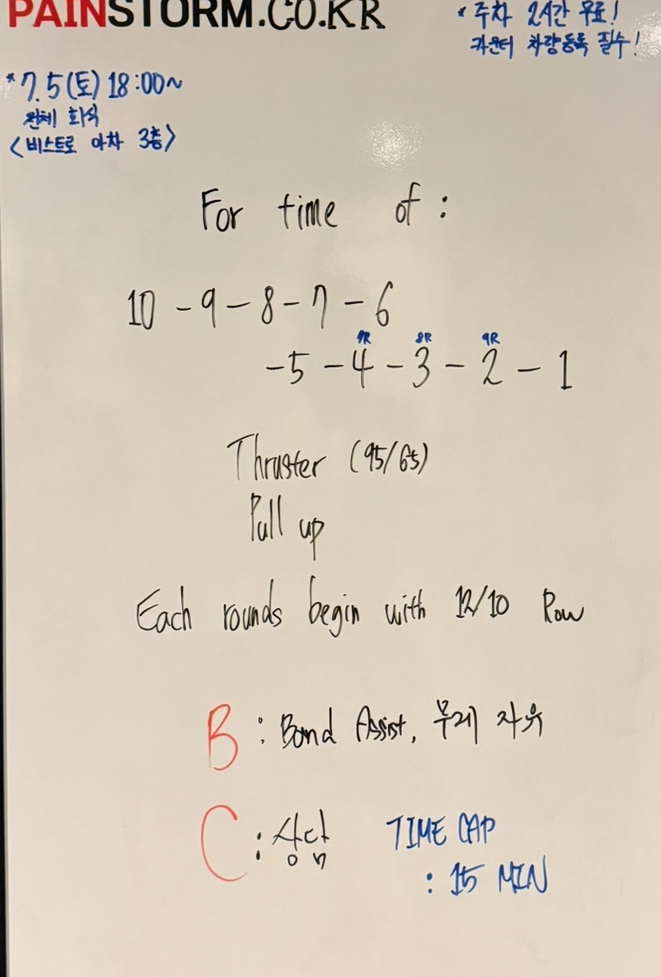 PAINSTORM.CO.KR
* 주차 2시간 무료!
카운터 차량등록 필수!
* 7.5(토) 18:00~
전체 회식
<비스트로 아차 3층>
For time of :
10 - 9 - 8 - 7 - 6
7R 8R 9R
- 5 - 4 - 3 - 2 - 1
Thruster (95/65)
Pull up
Each rounds begin with 12/10 Row
B : Band Assist, 무게 자유
C : 상담
TIME CAP
: 15 MIN